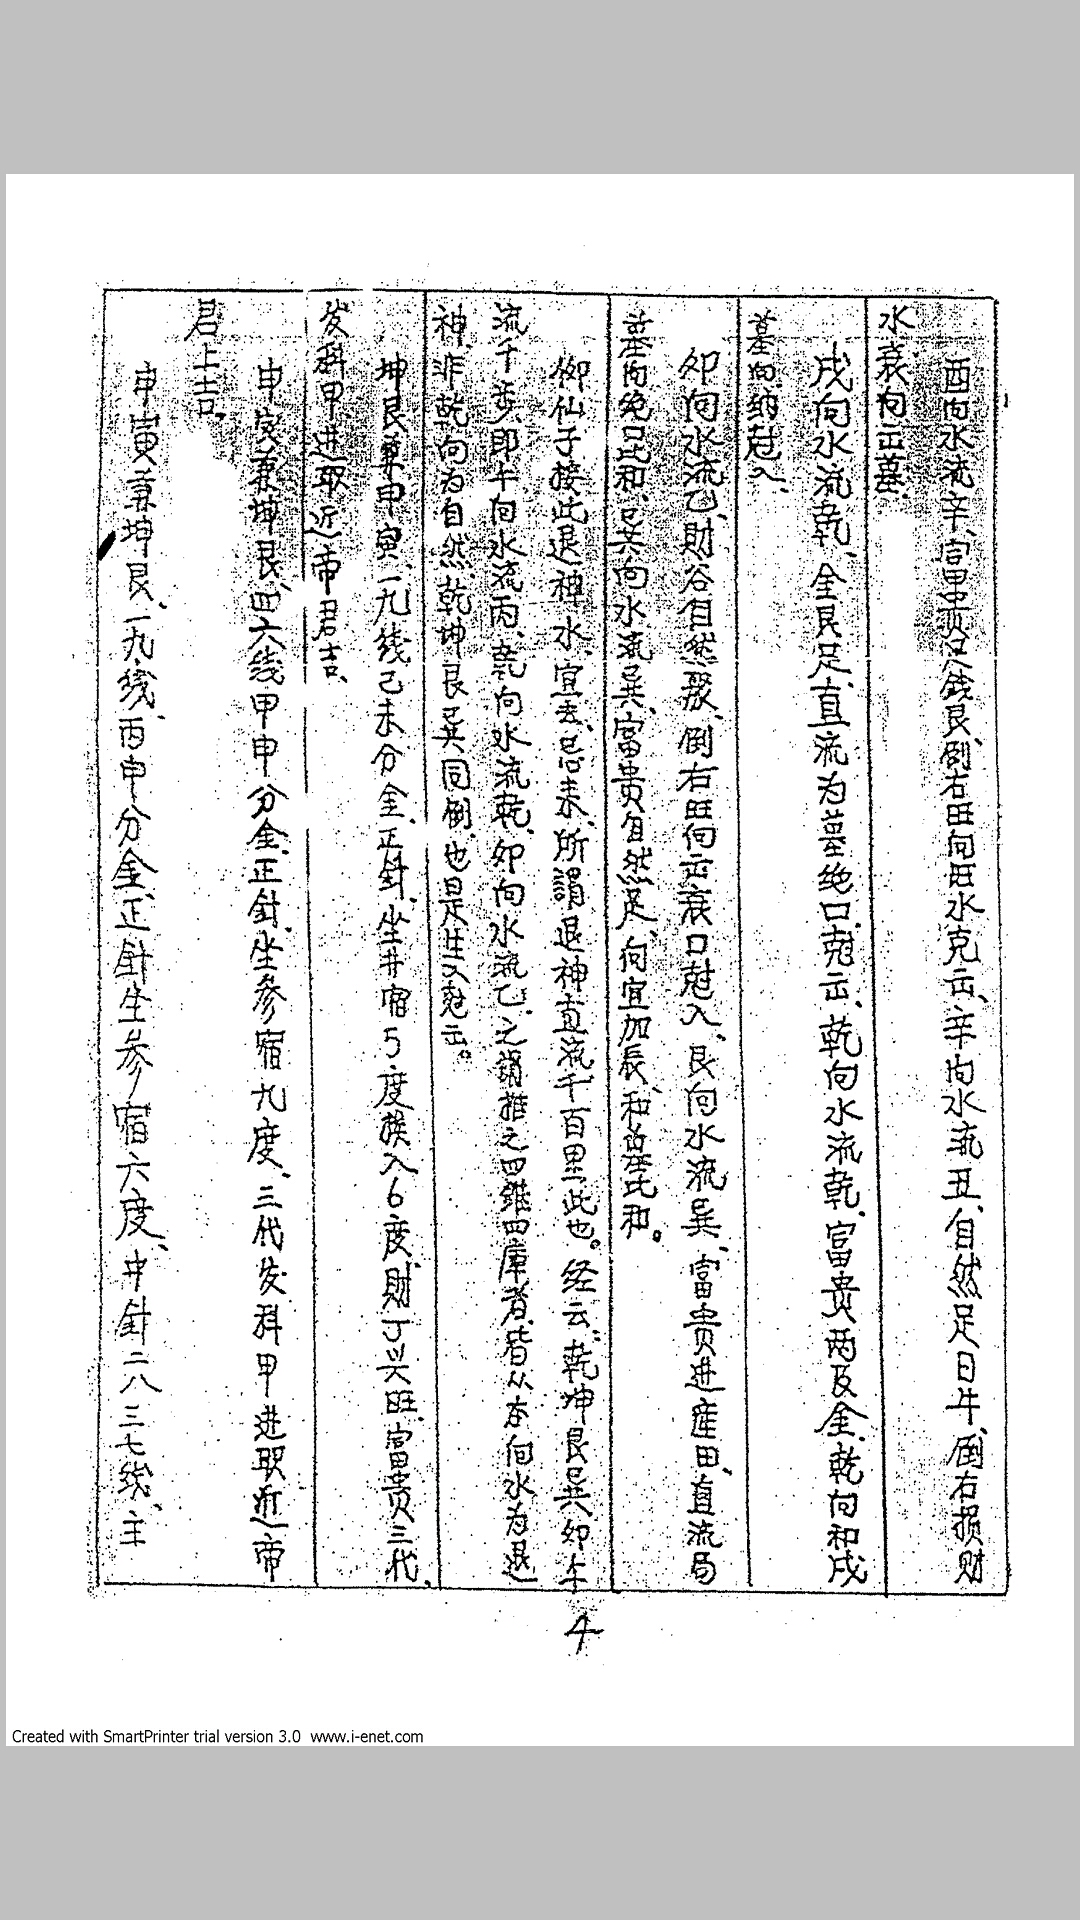 酉向水流辛、富畢贵只錢艮、倒右旺向旺水克云、辛向水流丑、自然足日牛、倒右损财
水衰向云墓、
戌向水流乾、全艮足、直流为墓绝口、尅云、乾向水流乾、富贵两及全、乾向和戌
墓向纳尅入、
卯向水流乙、財谷自然聚、倒右旺向云衰口尅入、艮向水流巽、富貴进産田、直流局
墓向绝口比和、巽向水流巽、富貴自然足、向宜加辰、和 比和。
御仙子接此退神水、宜去、忌来、所謂退神直流千百里此也。经云："乾坤艮巽卯午
流千步即午向水流丙、乾向水流乾、卯向水流乙、之 推之四維四庫者、皆从本向水为退
神、非乾向为自然、乾坤艮巽同倒、也是生入尅云。
坤艮兼申寅、一九线己未分金、正針、坐井宿5度 入6度、財丁兴旺、富贵三代、
发科甲进取近帝君吉、
申寅兼坤艮、四六线甲申分金、正針、坐参宿九度、三代发科甲进取近帝
君上吉、
申寅兼坤艮、一九线、丙申分金、正針坐参宿六度、中針二八三七线、主
4
Created with SmartPrinter trial version 3.0 www.i-enet.com